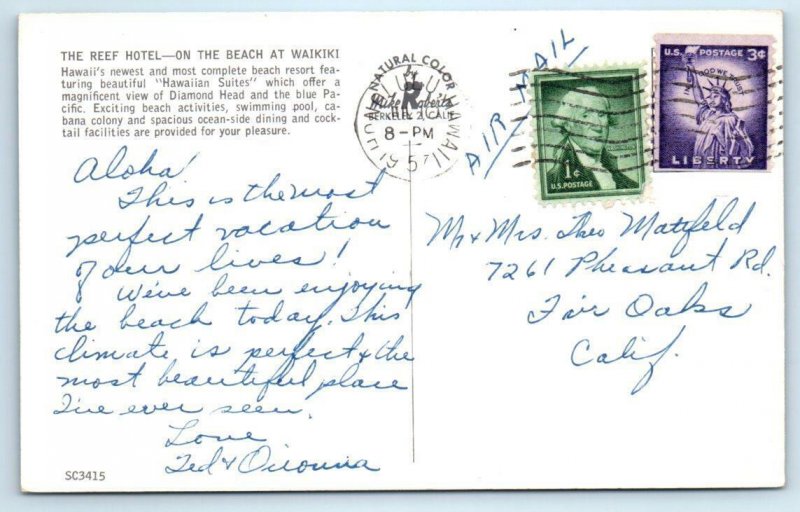 THE REEF HOTEL—ON THE BEACH AT WAIKIKI
Hawaii's newest and most complete beach resort fea-
turing beautiful "Hawaiian Suites" which offer a
magnificent view of Diamond Head and the blue Pa-
cific. Exciting beach activities, swimming pool, ca-
bana colony and spacious ocean-side dining and cock-
tail facilities are provided for your pleasure.
Aloha!
This is the most
perfect vacation
of our lives!
We've been enjoying
the beach today. This
climate is perfect & the
most beautiful place
I've ever seen.
Love
Ted &
SC3415
NATURAL COLOR
by
Mike Roberts
BERKELEY 2, CALIF.
HAWAII
8-PM
AIR MAIL
1¢
U.S. POSTAGE
U.S. POSTAGE 3¢
IN GOD WE TRUST
LIBERTY
Mr & Mrs. Theo Mattfeld
7261 Pheasant Rd.
Fair Oaks
Calif.